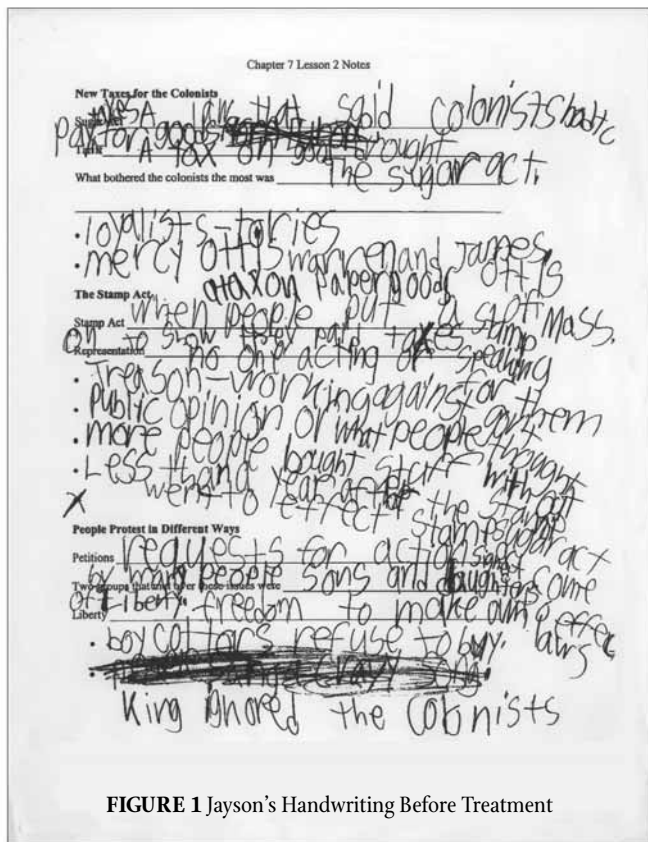 Chapter 7 Lesson 2 Notes
New Taxes for the Colonists
taxes A law that said colonists had to
Sugar Act
pay for goods
Tariff A tax on goods brought
What bothered the colonists the most was The sugar act.
• loyalists - tories
• mercy ottis warren and James
ottis
a tax on paper goods
The Stamp Act
when people put a stamp
Mass.
Stamp Act
on to show they paid taxes
Representation no one acting or speaking
for them
• Treason - working against
• Public opinion or what people thought
• more people bought stuff without
the stamp
• Less than a year after the
went to effect
stamp sugar act
x
People Protest in Different Ways
Petitions requests for action signed
by many people sons and daughters
Two groups that over these issues were
of Liberty.
come
Liberty freedom to make own
laws
• boycottars refuse to buy.
•
King ignored the colonists
FIGURE 1 Jayson's Handwriting Before Treatment